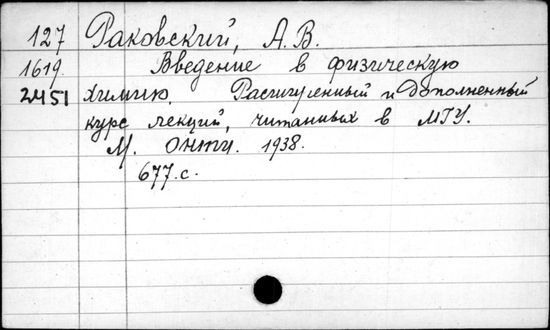 127 Раковский, А.В.
1619. Введение в физическую
2М51 химию. Расширенный и дополненный
курс лекций, читанных в МГУ.
М. ОНТИ. 1938.
677.с.